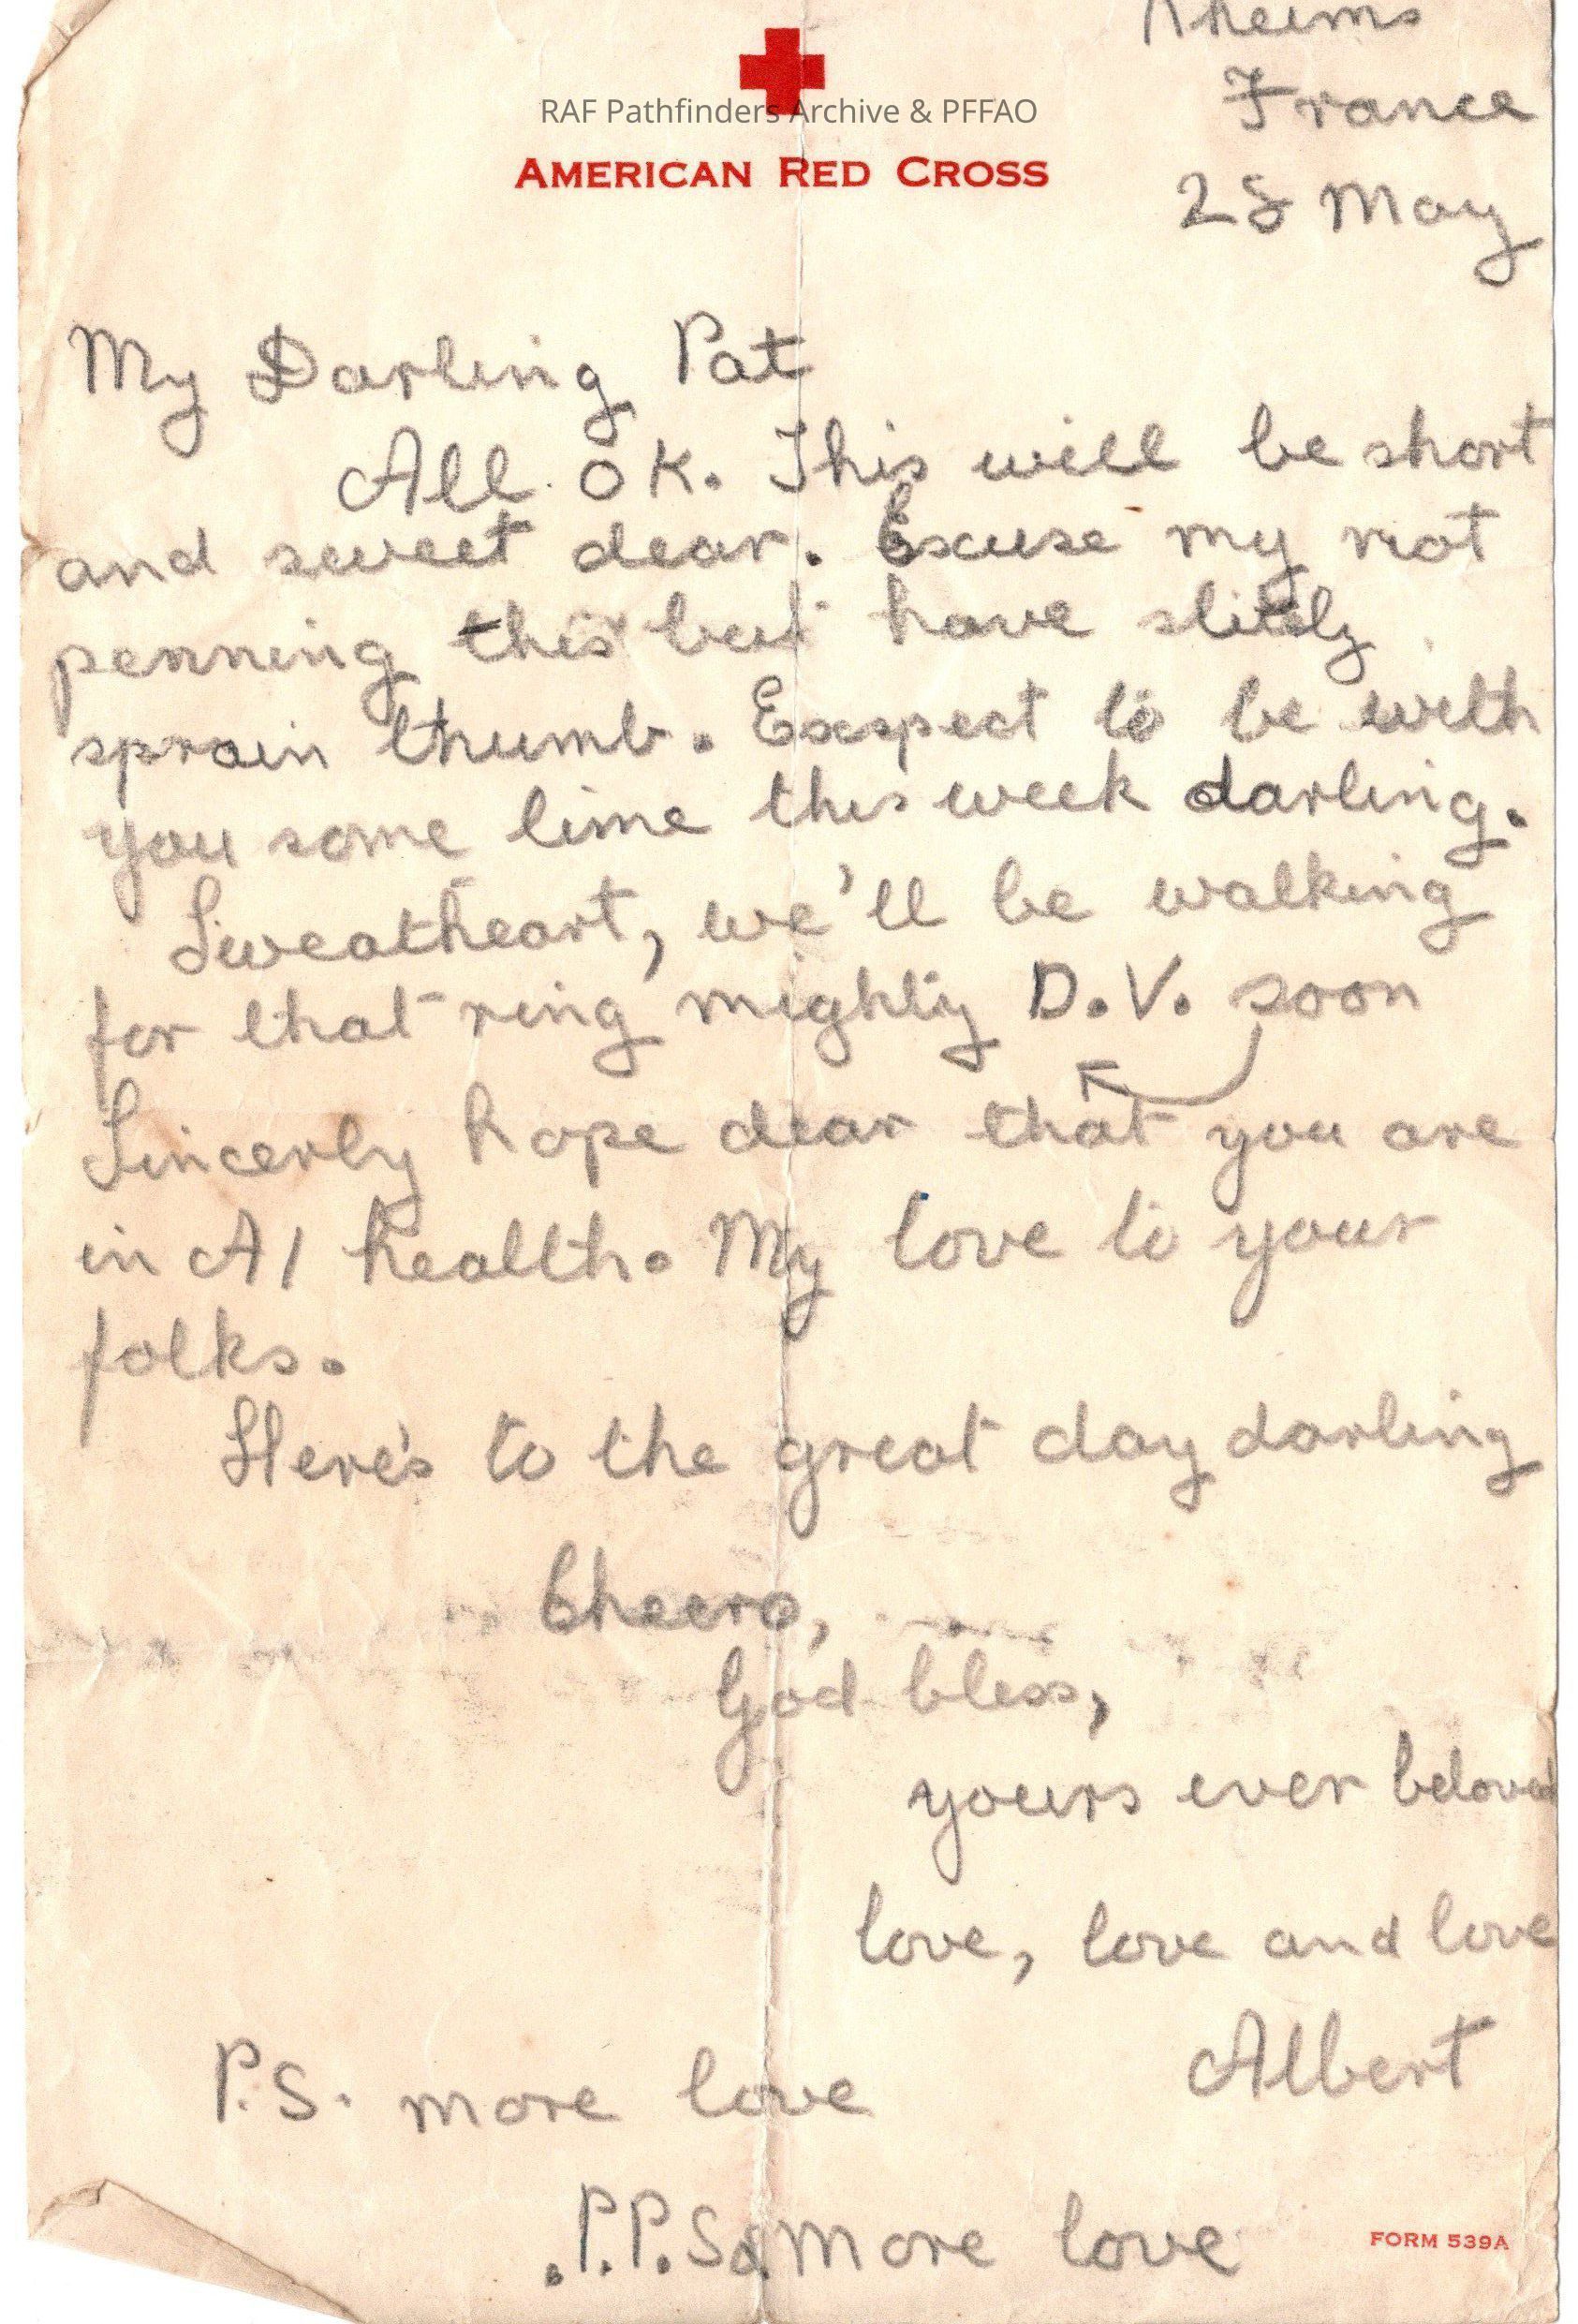 Rheims
France
RAF Pathfinders Archive & PFFAO
AMERICAN RED CROSS
28 May
My Darling Pat
All OK. This will be short
and sweet dear. Excuse my not
penning this but have
sprain thumb. Exspect to be with
you some time this week darling.
Sweatheart, we'll be walking
for that ring mighty D.V. soon
Sincerly hope dear that you are
in A1 health. My love to your
folks.
Here's to the great day darling
Cheero,
God bless,
yours ever beloved
love, love and love
Albert
P.S. more love
.P.P.S. More love
FORM 539A